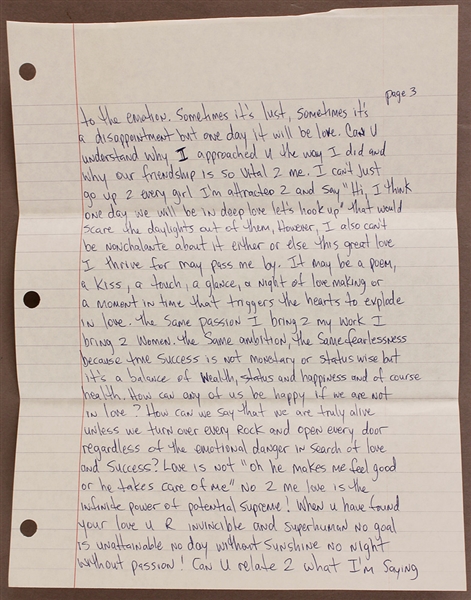 page 3
to the emotion. Sometimes it's lust, sometimes it's
a disappointment but one day it will be love. Can U
understand why I approached U the way I did and
why our friendship is so vital 2 me. I can't just
go up 2 every girl I'm attracted 2 and say "Hi, I think
one day we will be in deep love let's hook up" that would
scare the daylights out of them, However, I also can't
be nonchalante about it either or else this great love
I thrive for may pass me by. It may be a poem,
a kiss, a touch, a glance, a night of love making or
a moment in time that triggers the hearts to explode
in love. The same passion I bring 2 my work I
bring 2 women. The same ambition, the same fearlessness
because true success is not monetary or status wise but
it's a balance of wealth, status and happiness and of course
health. How can any of us be happy if we are not
in love? How can we say that we are truly alive
unless we turn over every Rock and open every door
regardless of the emotional danger in search of love
and success? Love is not "oh he makes me feel good
or he takes care of me" No 2 me love is the
infinite power of potential supreme! When u have found
your love U R invincible and superhuman no goal
is unattainable no day without sunshine no night
without passion! Can U relate 2 what I'm saying